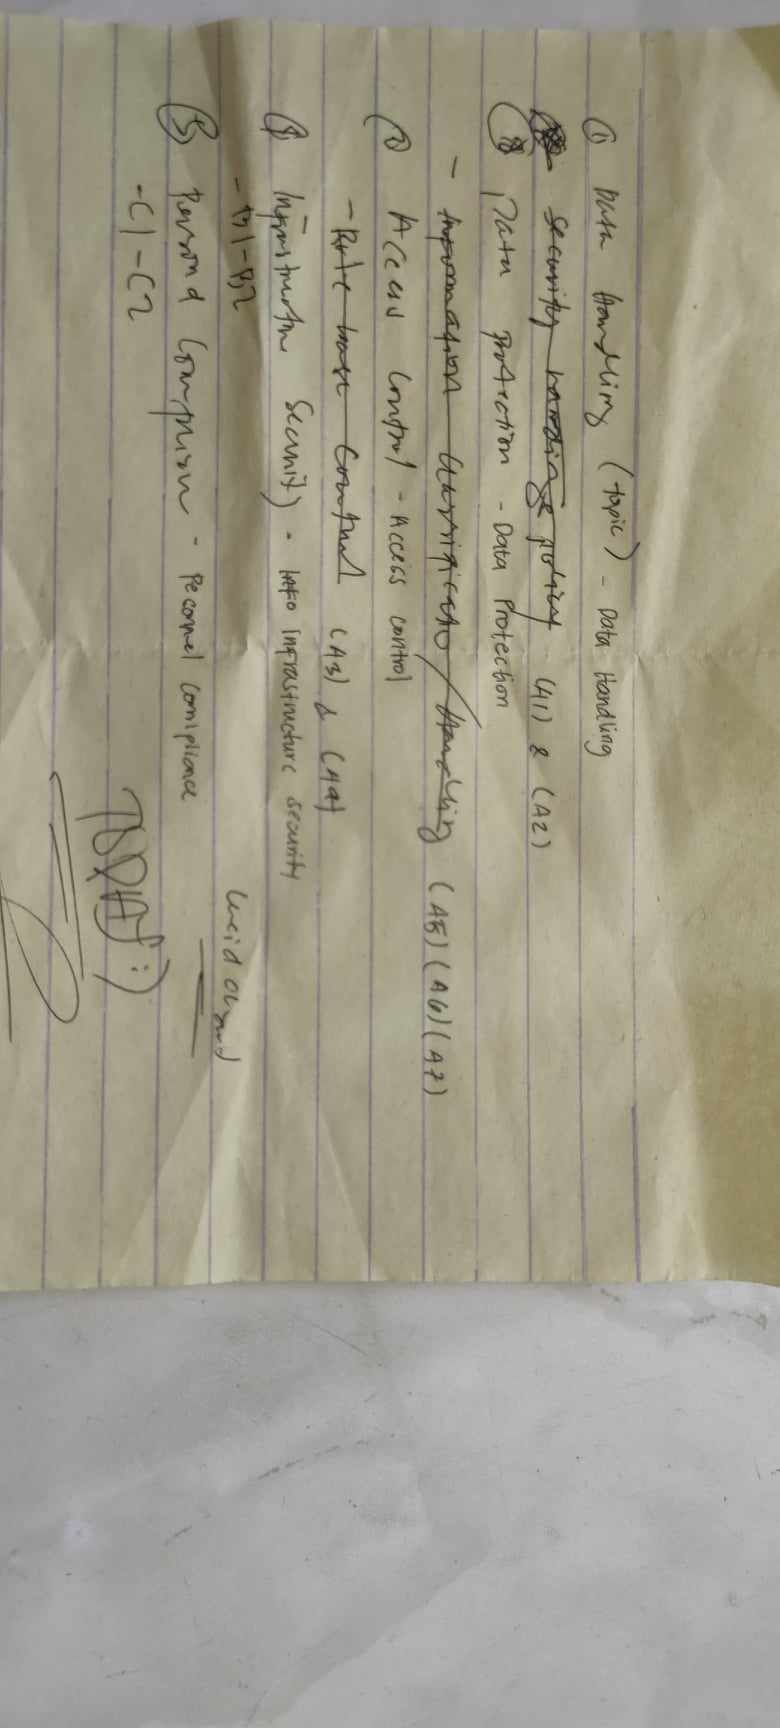 ① Data Handling (topic) - Data Handling
security handling policy (A1) & (A2)
Data protection - Data Protection
- Information Classificatio / Handling (A5) (A6) (A7)
② Access Control - Access control
- Role base Control (A3) & (A4)
④ Infrastructure Security - Info infrastructure security
- B1-B2
⑤ Personal - Peconnel comipliance
- C1 - C2
TODAY :)